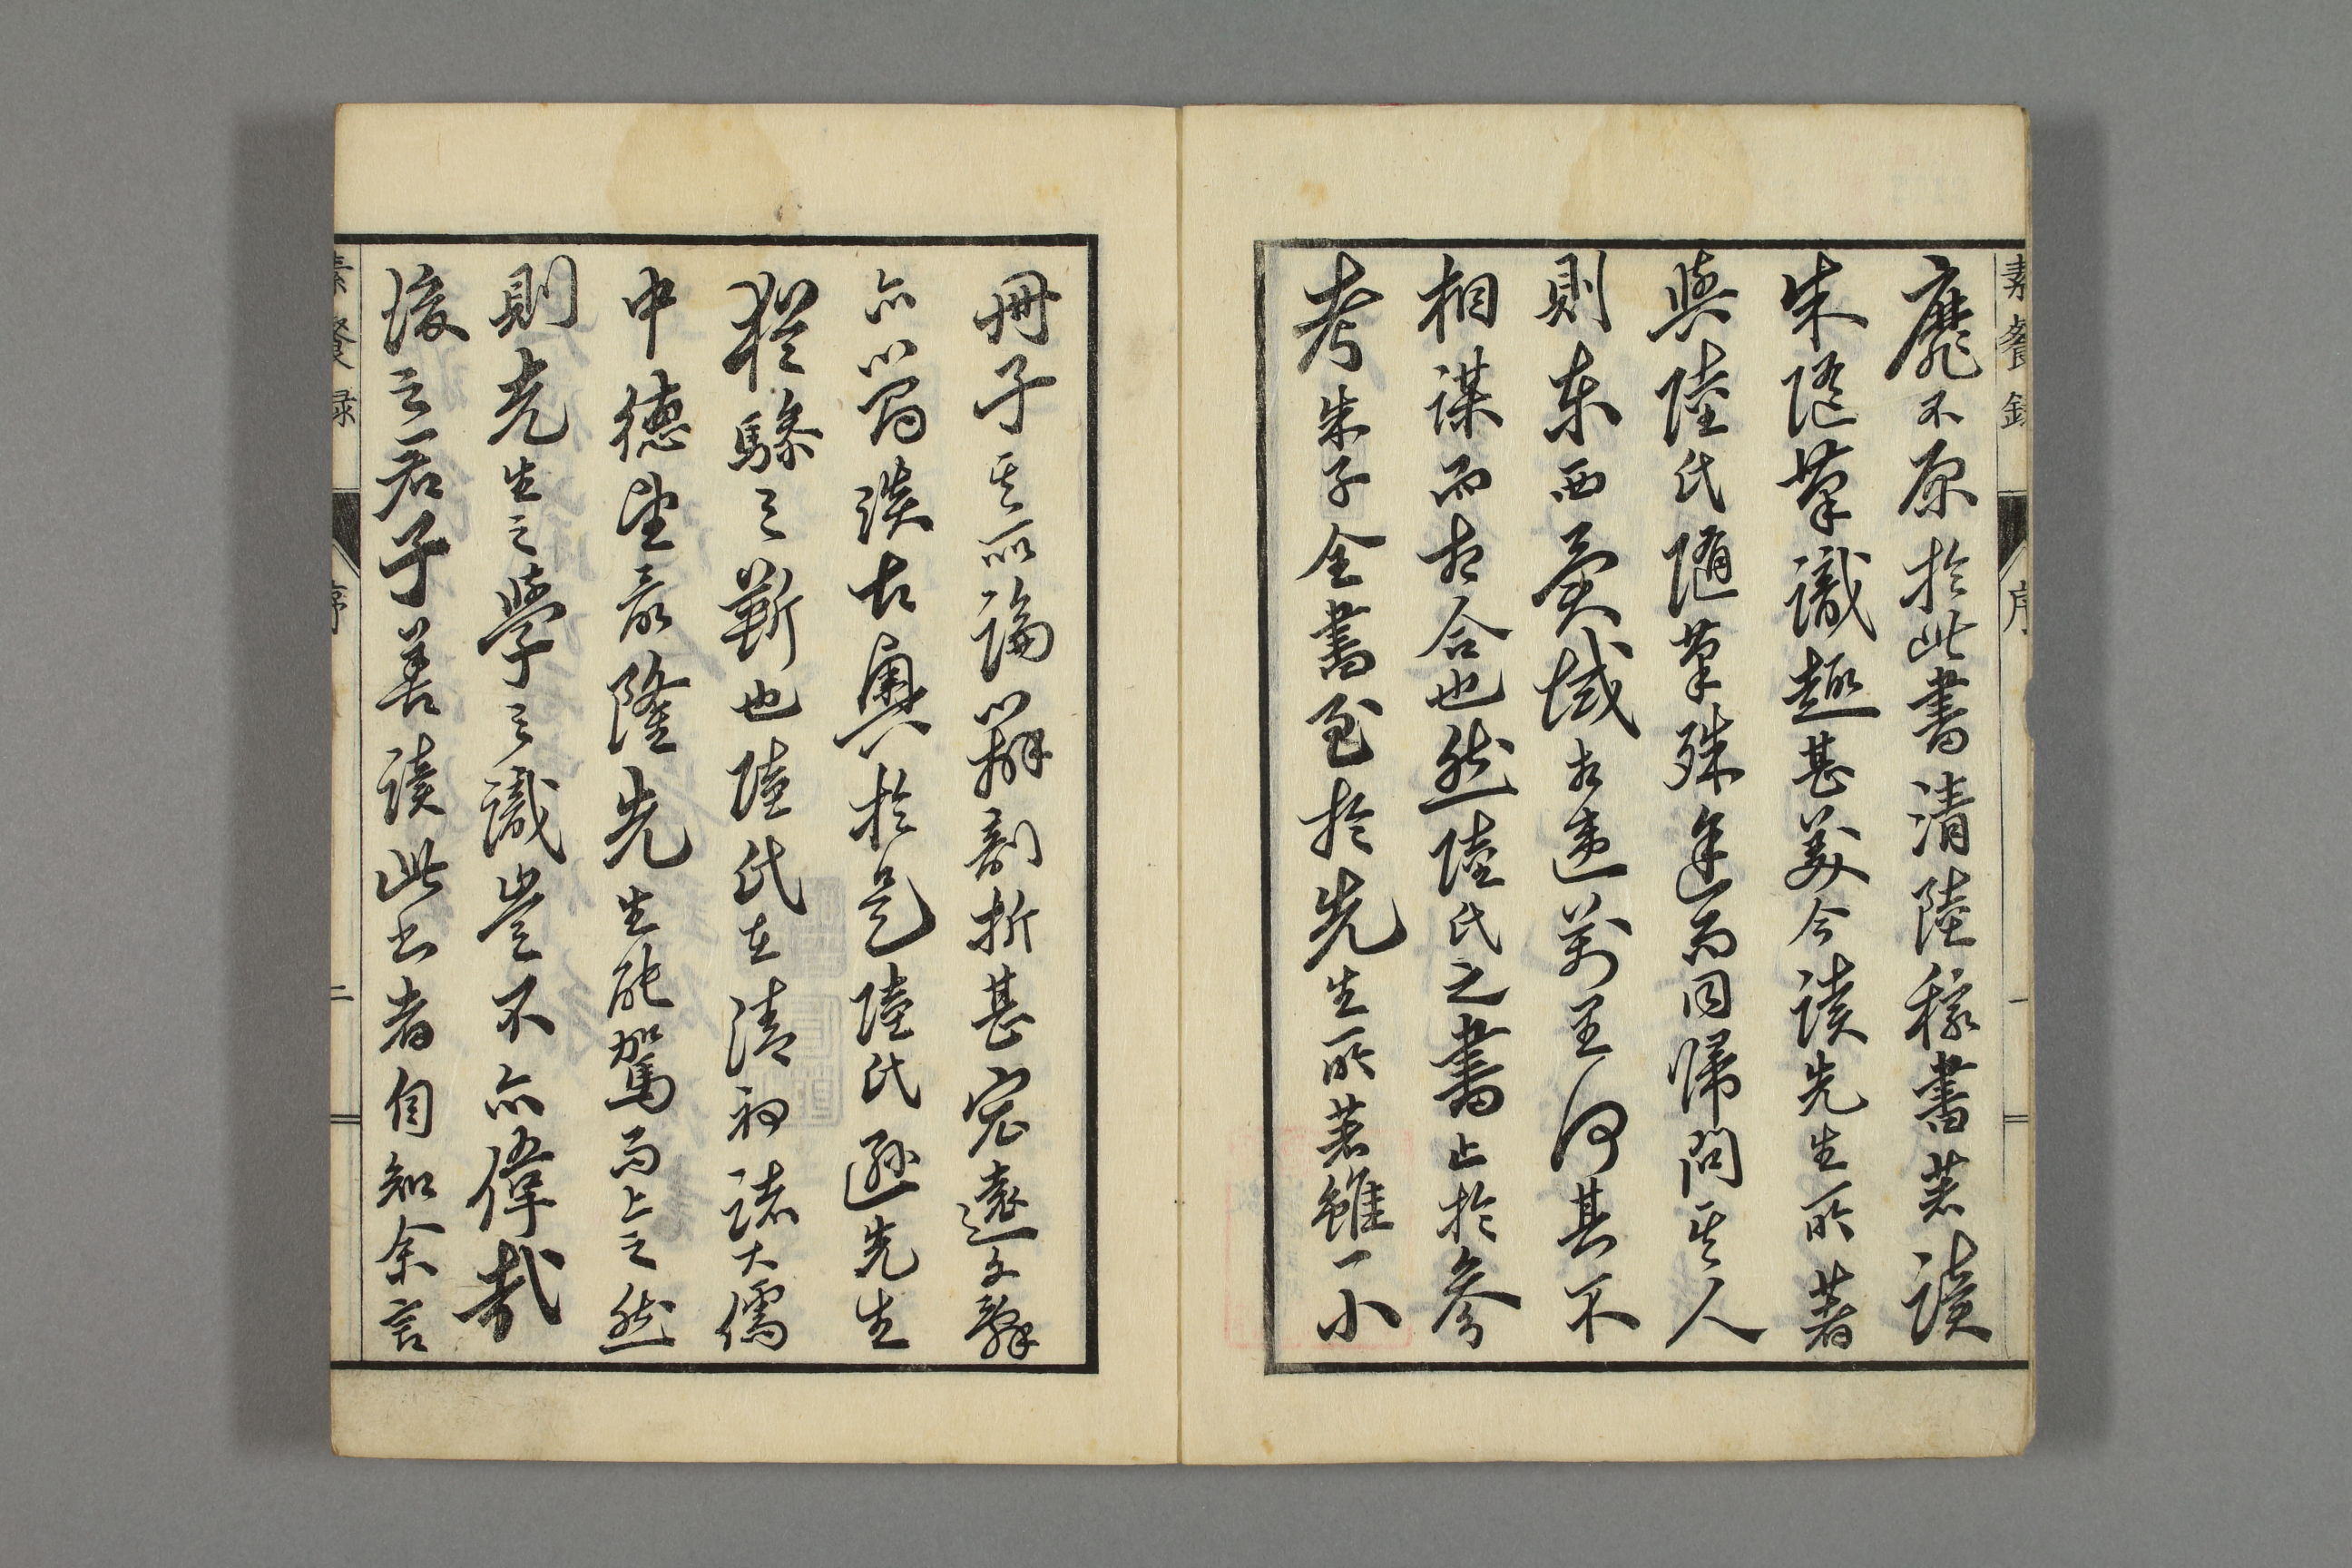 素餐録
序
一
靡不原於此書清陸稼書著讀
朱隨筆識趣甚美今讀先生所著
與陸氏隨筆殊途而同歸問其人
則東西夐域相違萬里何其不
相謀而相合也然陸氏之書止於參
考朱子全書至於先生所著雖一小
冊子其所論以辨剖析甚宏遠文辭
亦以簡淡古奧於是陸氏遜先生
猶驂之靳也陸氏在清初諸大儒
中德望最隆先生能駕而上之然
則先生之學之識豈不亦偉哉
後之君子善讀此書者自知余言
素餐録
序
二